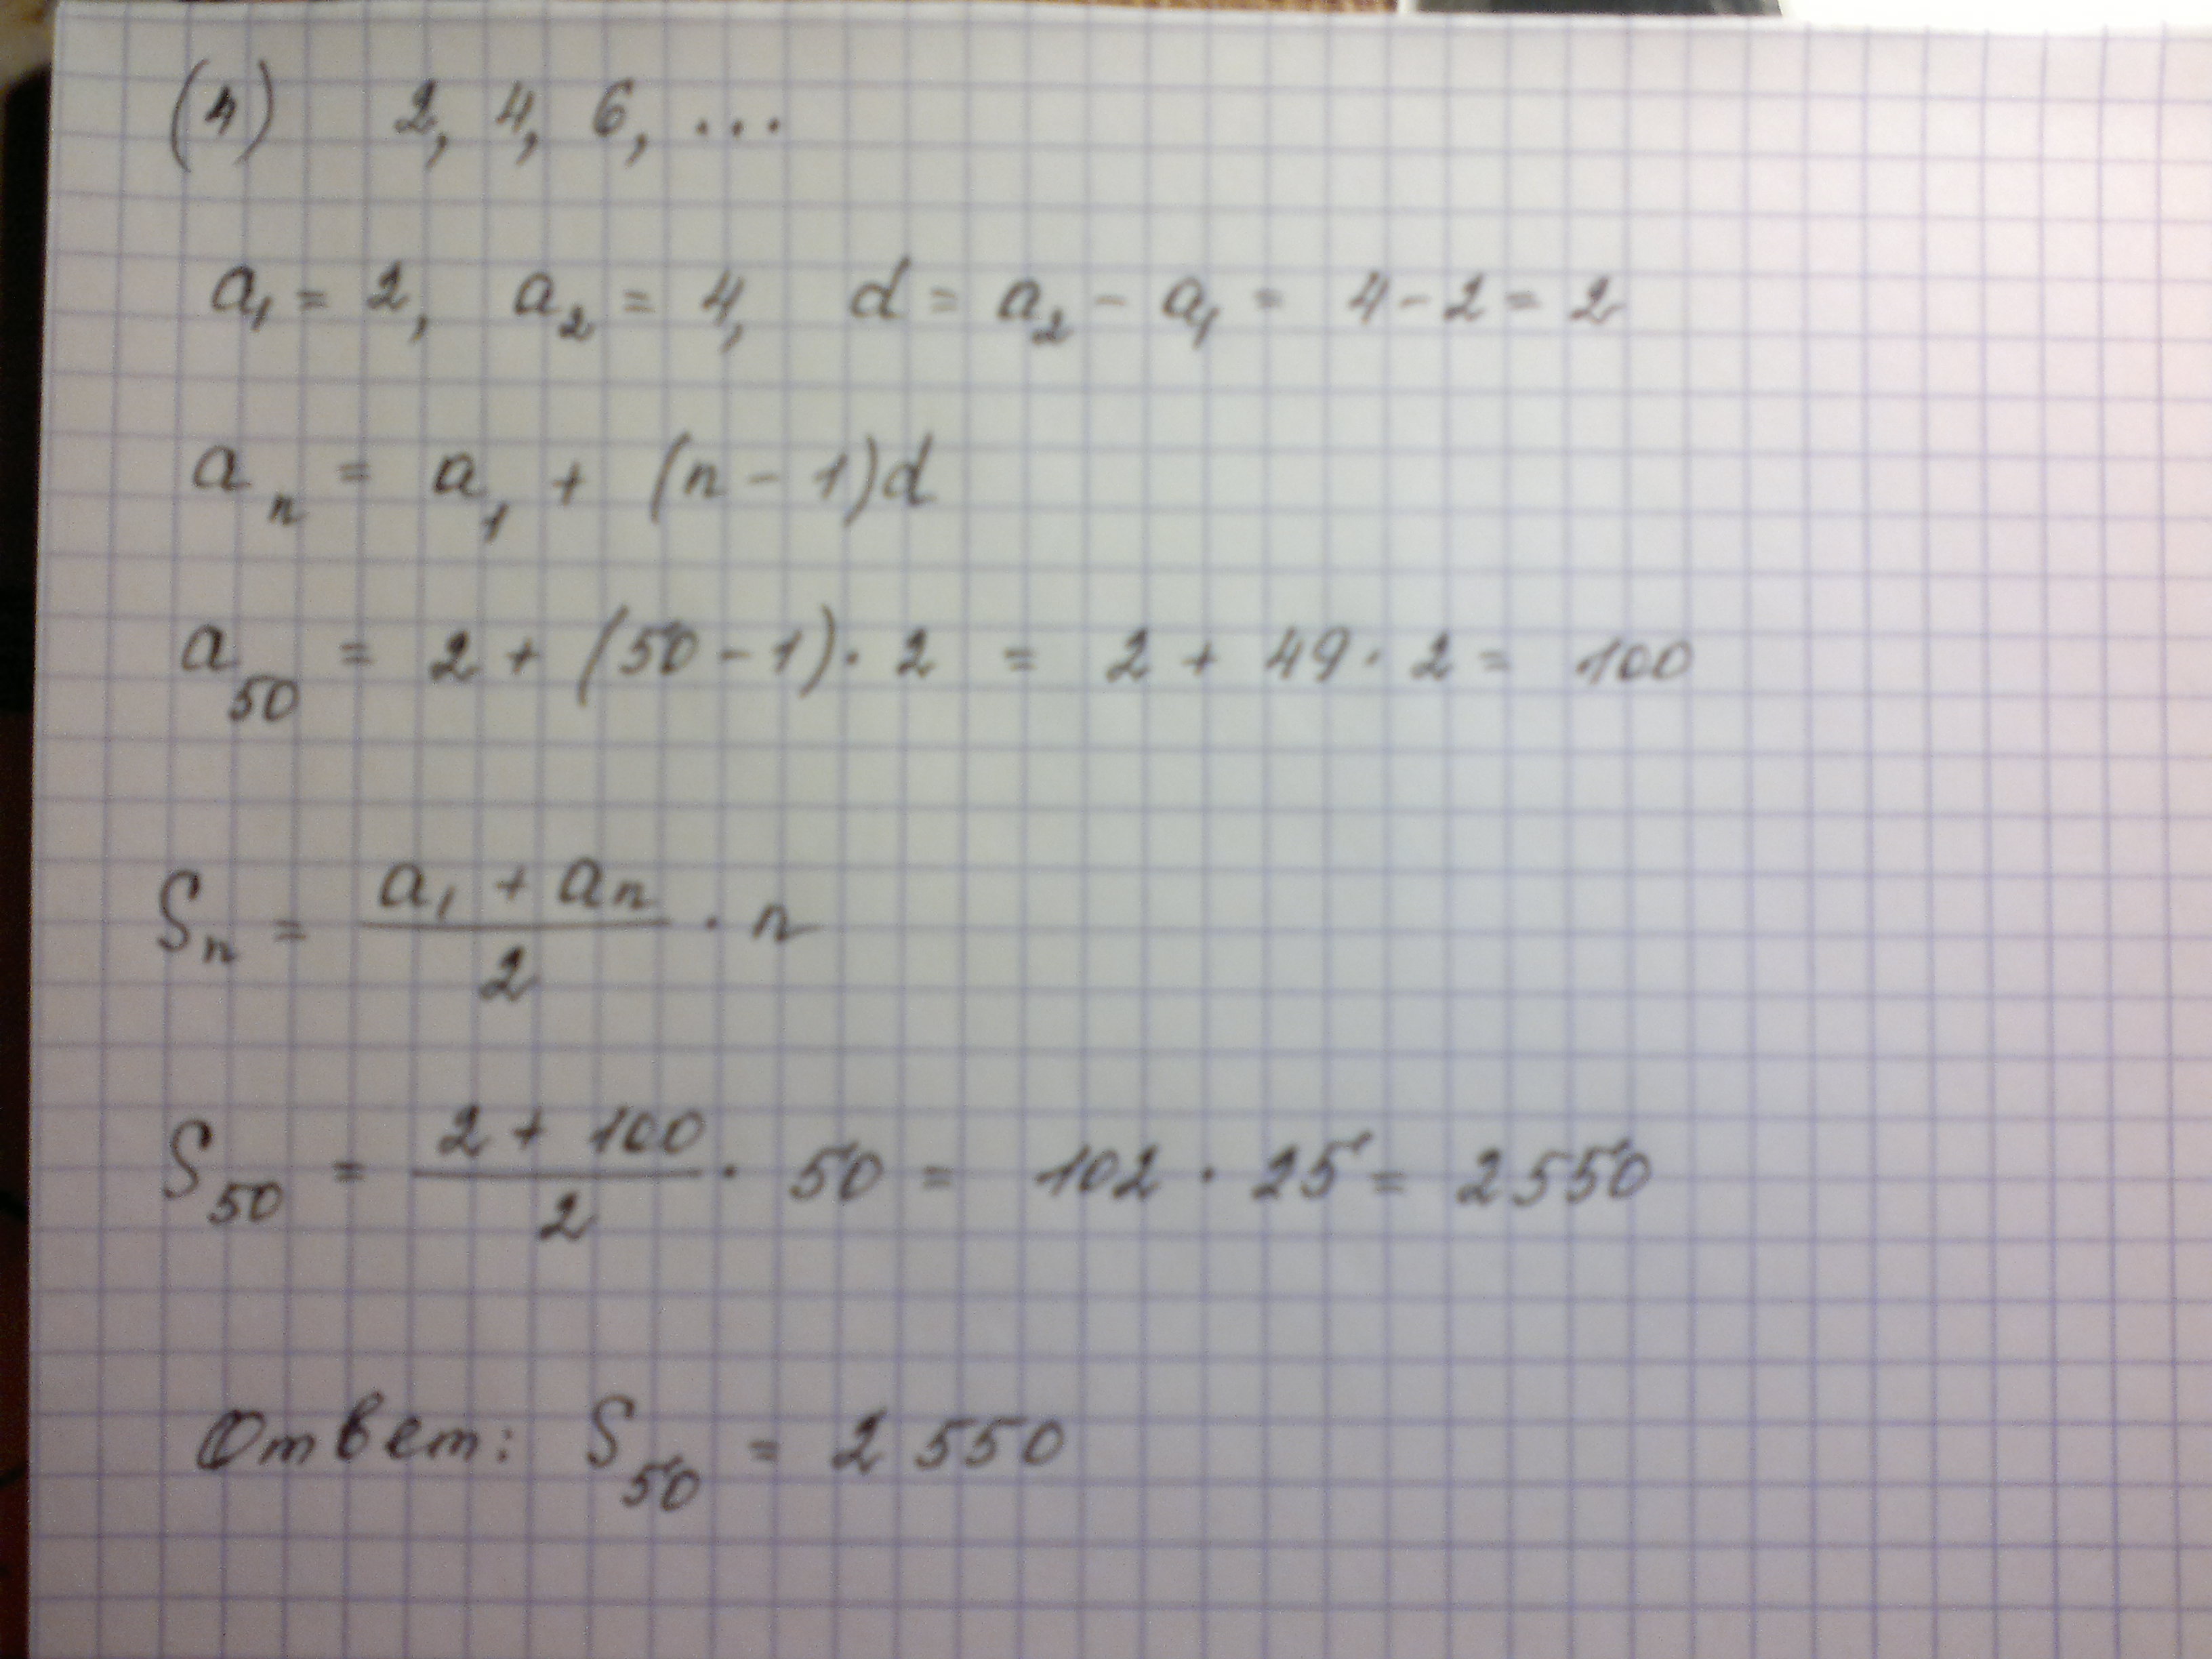 (4) 2, 4, 6, ...
a₁ = 2, a₂ = 4, d = a₂ - a₁ = 4 - 2 = 2
aₙ = a₁ + (n - 1)d
a₅₀ = 2 + (50 - 1) · 2 = 2 + 49 · 2 = 100
Sₙ = (a₁ + aₙ)/2 · n
S₅₀ = (2 + 100)/2 · 50 = 102 · 25 = 2550
Ответ: S₅₀ = 2550